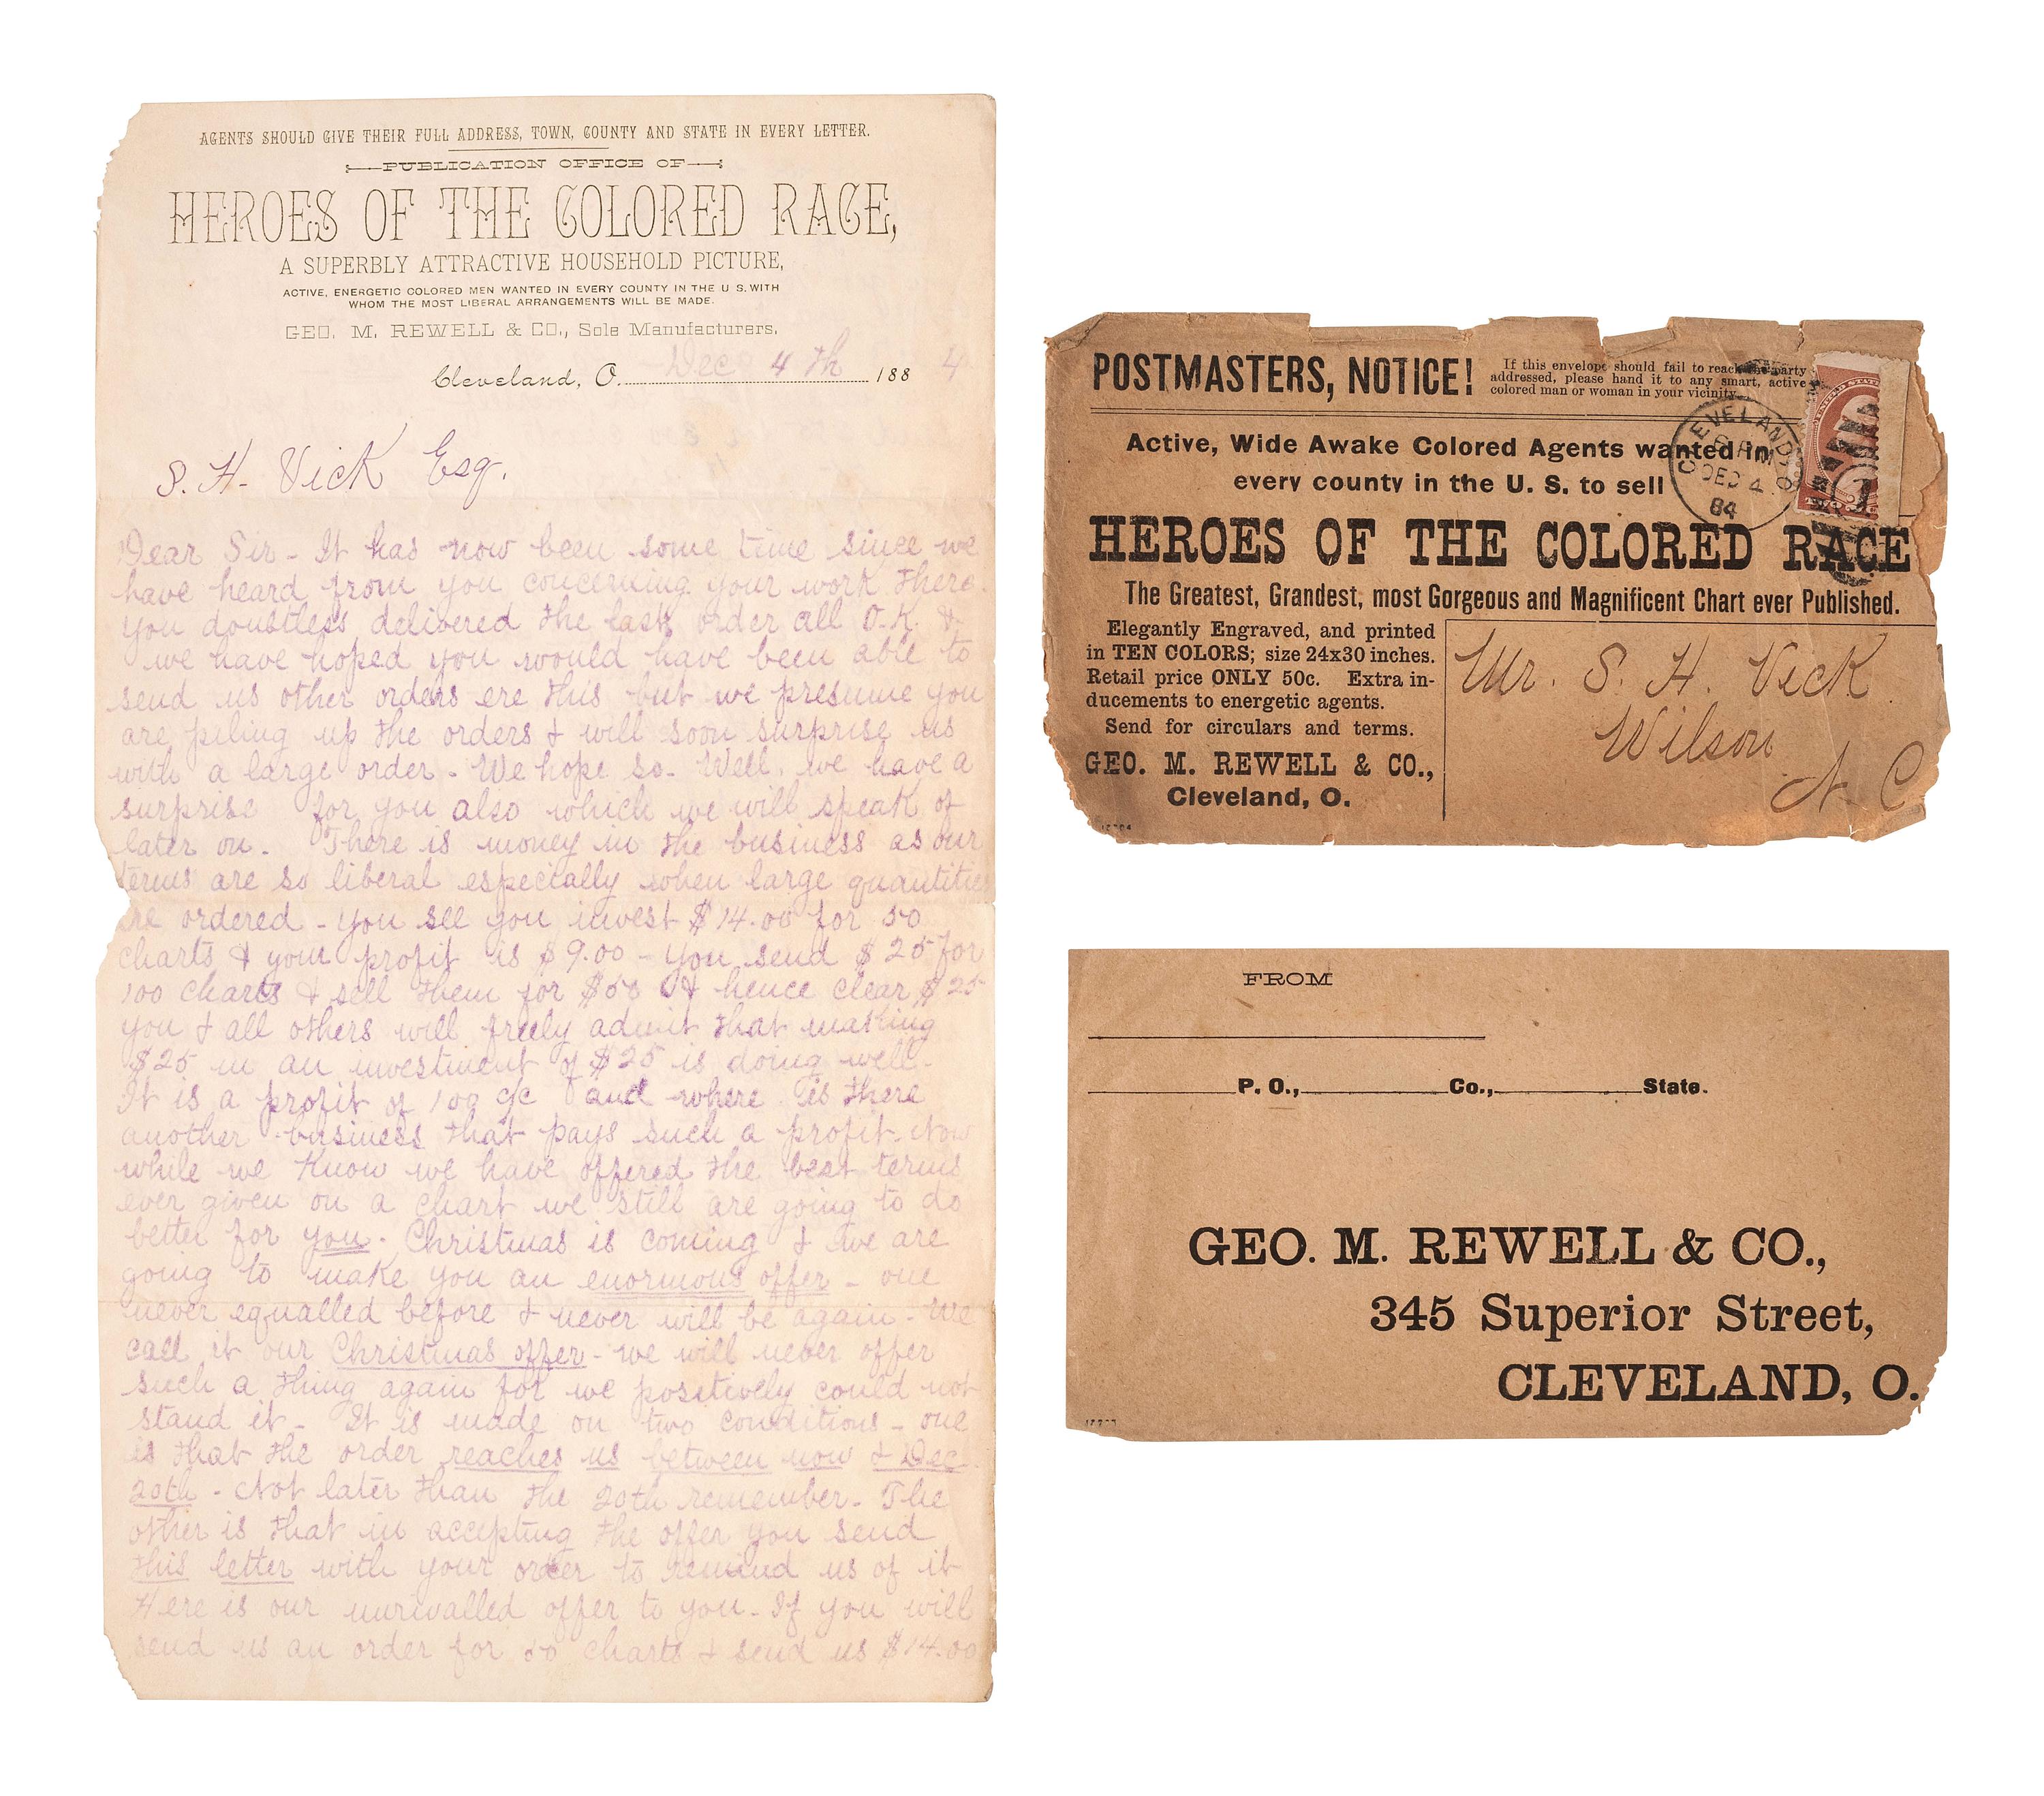 AGENTS SHOULD GIVE THEIR FULL ADDRESS, TOWN, COUNTY AND STATE IN EVERY LETTER.
PUBLICATION OFFICE OF
HEROES OF THE COLORED RACE,
A SUPERBLY ATTRACTIVE HOUSEHOLD PICTURE,
ACTIVE, ENERGETIC COLORED MEN WANTED IN EVERY COUNTY IN THE U S. WITH
WHOM THE MOST LIBERAL ARRANGEMENTS WILL BE MADE.
GEO. M. REWELL & CO., Sole Manufacturers,
Cleveland, O. Dec 4th 1884
S. H. Vick Esq.
Dear Sir - It has now been some time since we
have heard from you concerning your work there.
You doubtless delivered the last order all O.K. &
we have hoped you would have been able to
send us other orders ere this but we presume you
are piling up the orders & will soon surprise us
with a large order - We hope so - Well, we have a
surprise for you also which we will speak of
later on - There is money in the business as our
terms are so liberal especially when large quantities
are ordered - You see you invest $14.00 for 50
charts & your profit is $9.00 - You send $25 for
100 charts & sell them for $50 & hence clear $25
you & all others will freely admit that making
$25 in an investment of $25 is doing well -
It is a profit of 100 % and where is there
another business that pays such a profit. Now
while we know we have offered the best terms
ever given on a chart we still are going to do
better for you. Christmas is coming & we are
going to make you an enormous offer - one
never equalled before & never will be again - We
call it our Christmas offer - we will never offer
such a thing again for we positively could not
stand it - It is made on two conditions - one
is that the order reaches us between now & Dec.
20th - Not later than the 20th remember - The
other is that in accepting the offer you send
this letter with your order to remind us of it
Here is our unrivalled offer to you - If you will
send us an order for 50 charts & send us $14.00
POSTMASTERS, NOTICE!
If this envelope should fail to reach the party
addressed, please hand it to any smart, active
colored man or woman in your vicinity.
Active, Wide Awake Colored Agents wanted in
every county in the U. S. to sell
CLEVELAND, O.
DEC 4
84
HEROES OF THE COLORED RACE
The Greatest, Grandest, most Gorgeous and Magnificent Chart ever Published.
Elegantly Engraved, and printed
in TEN COLORS; size 24x30 inches.
Retail price ONLY 50c. Extra in-
ducements to energetic agents.
Send for circulars and terms.
GEO. M. REWELL & CO.,
Cleveland, O.
Mr. S. H. Vick
Wilson
N C
FROM
P. O., Co., State.
GEO. M. REWELL & CO.,
345 Superior Street,
CLEVELAND, O.